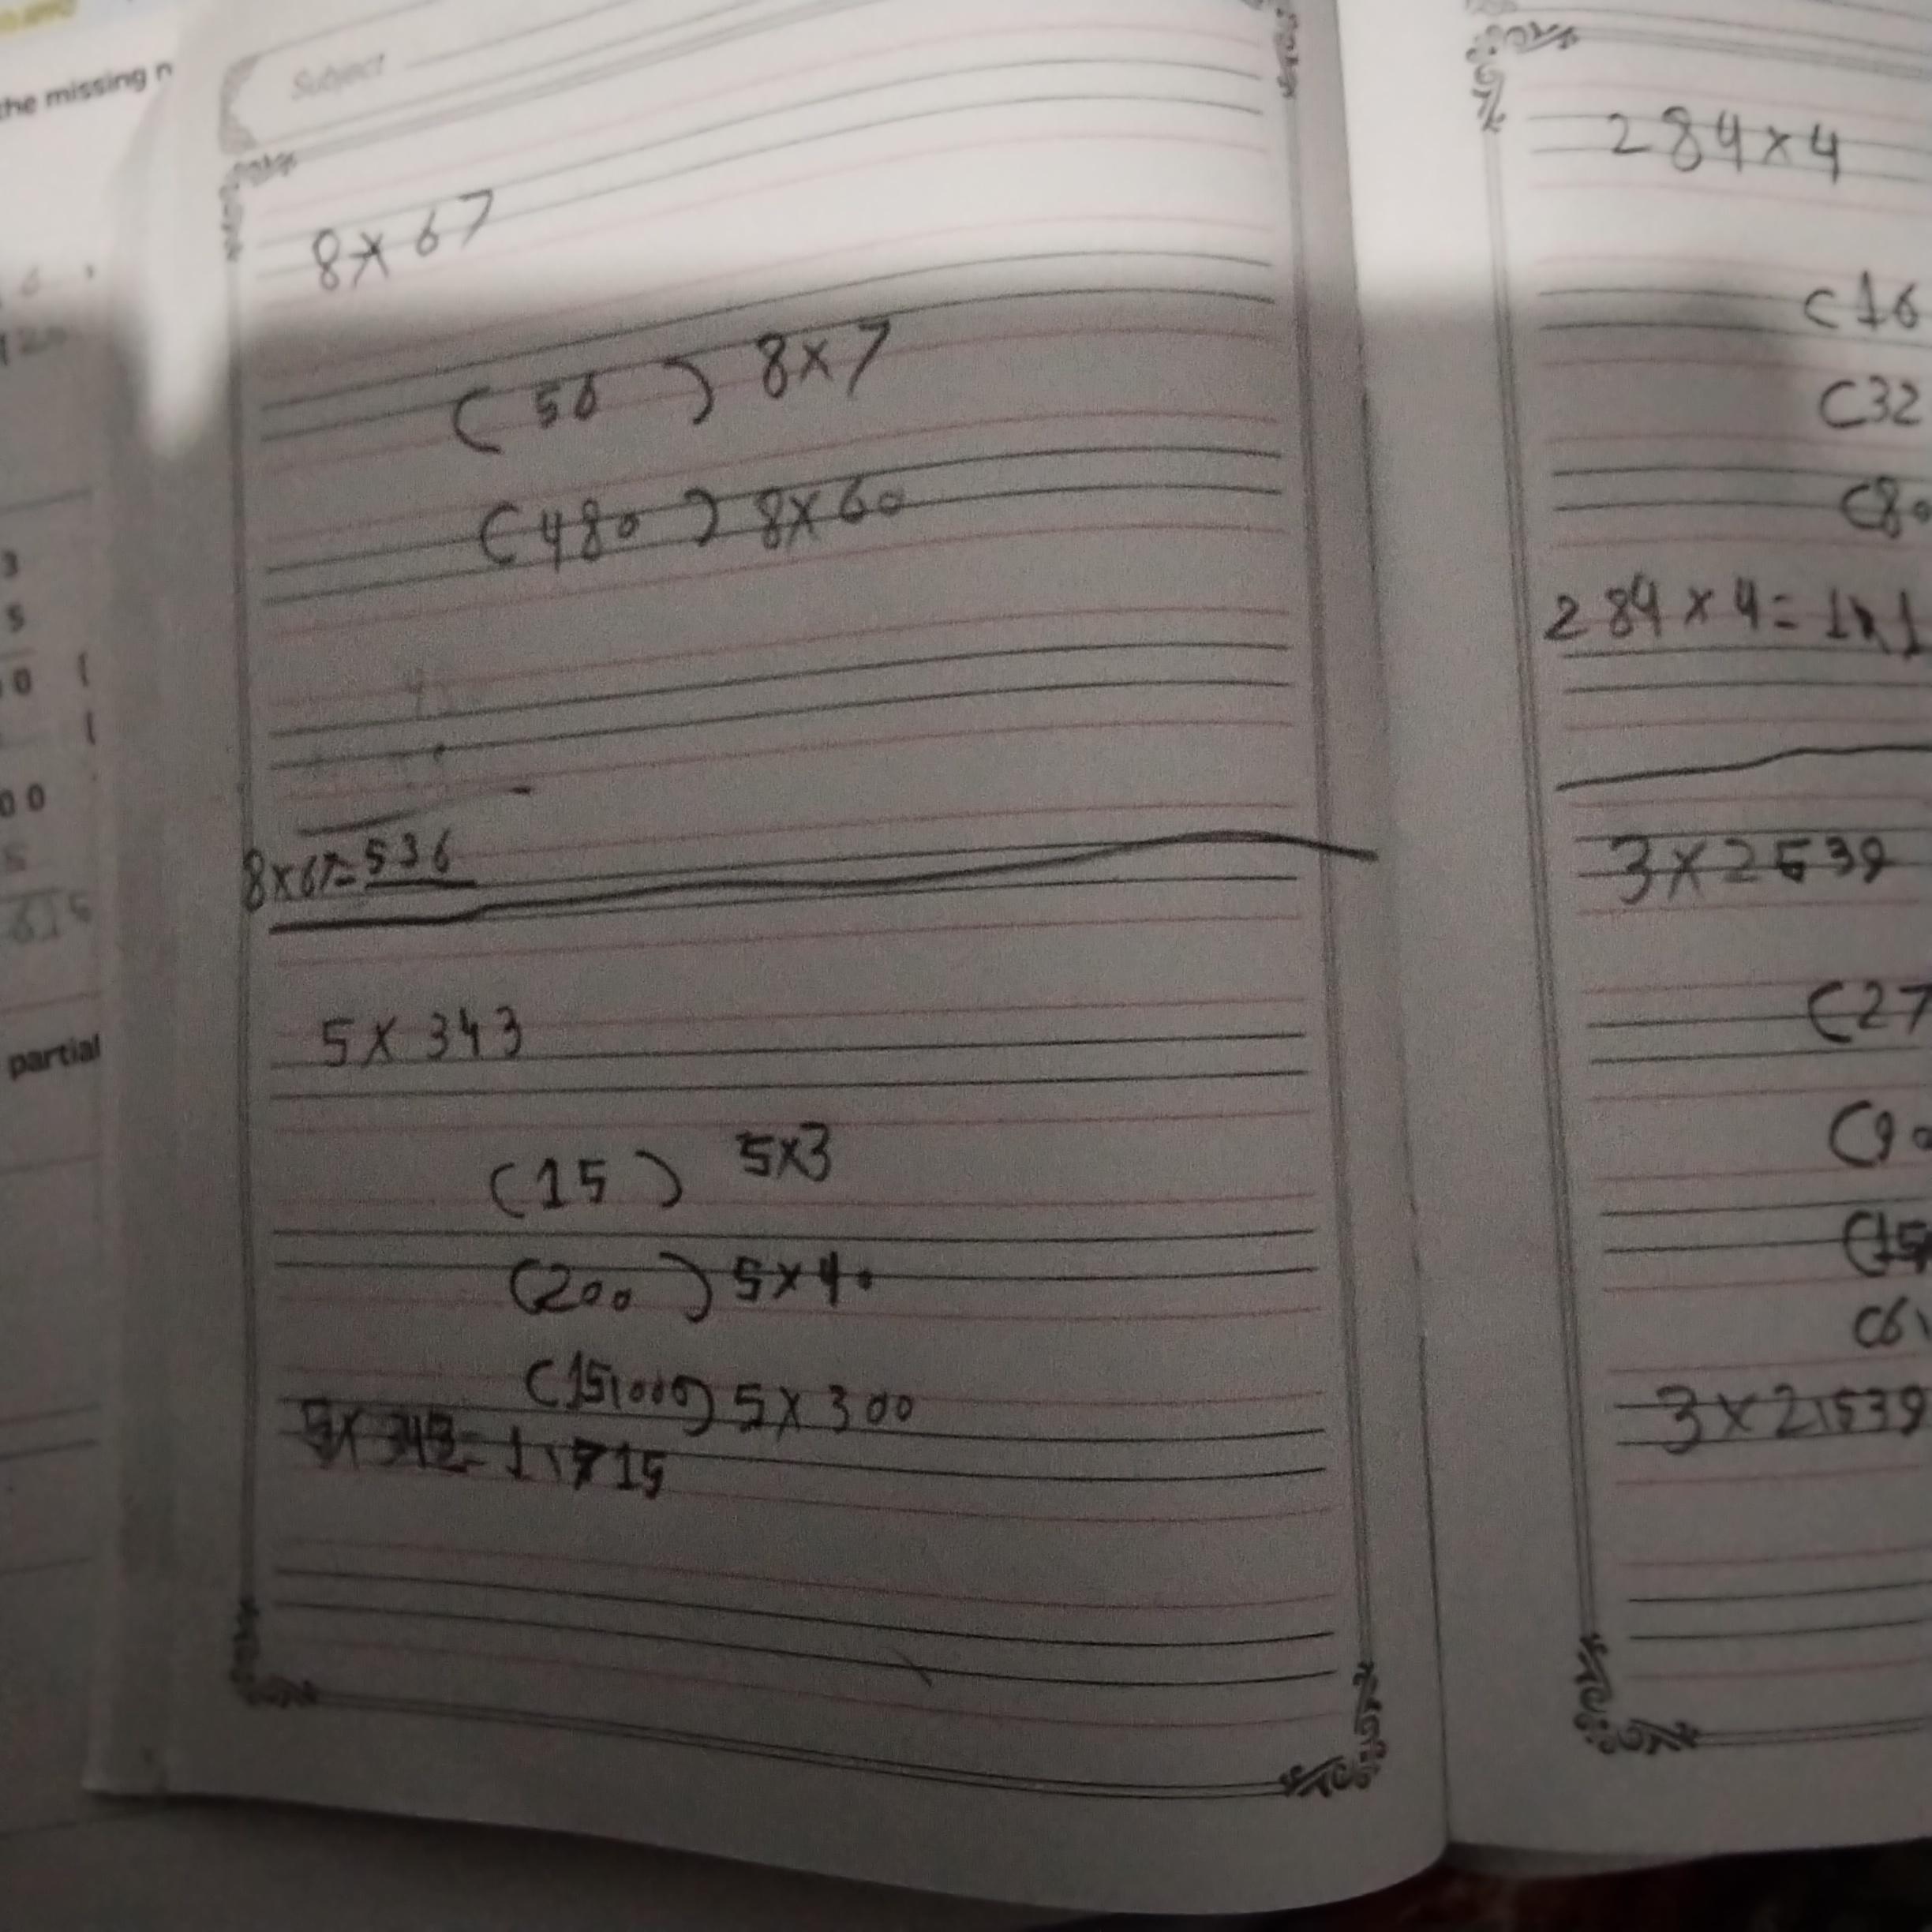 the missing n
3
5
0 1
1
00
5
partial
Subject
8 x 67
(56) 8x7
(480) 8x60
8x67=536
5 x 343
(15) 5x3
(200) 5x40
5x300
5x343=1,715
284x4
(16
(32
(80
284x4=1,1
3x2539
(27
(90
(15
(6,
3x2,539